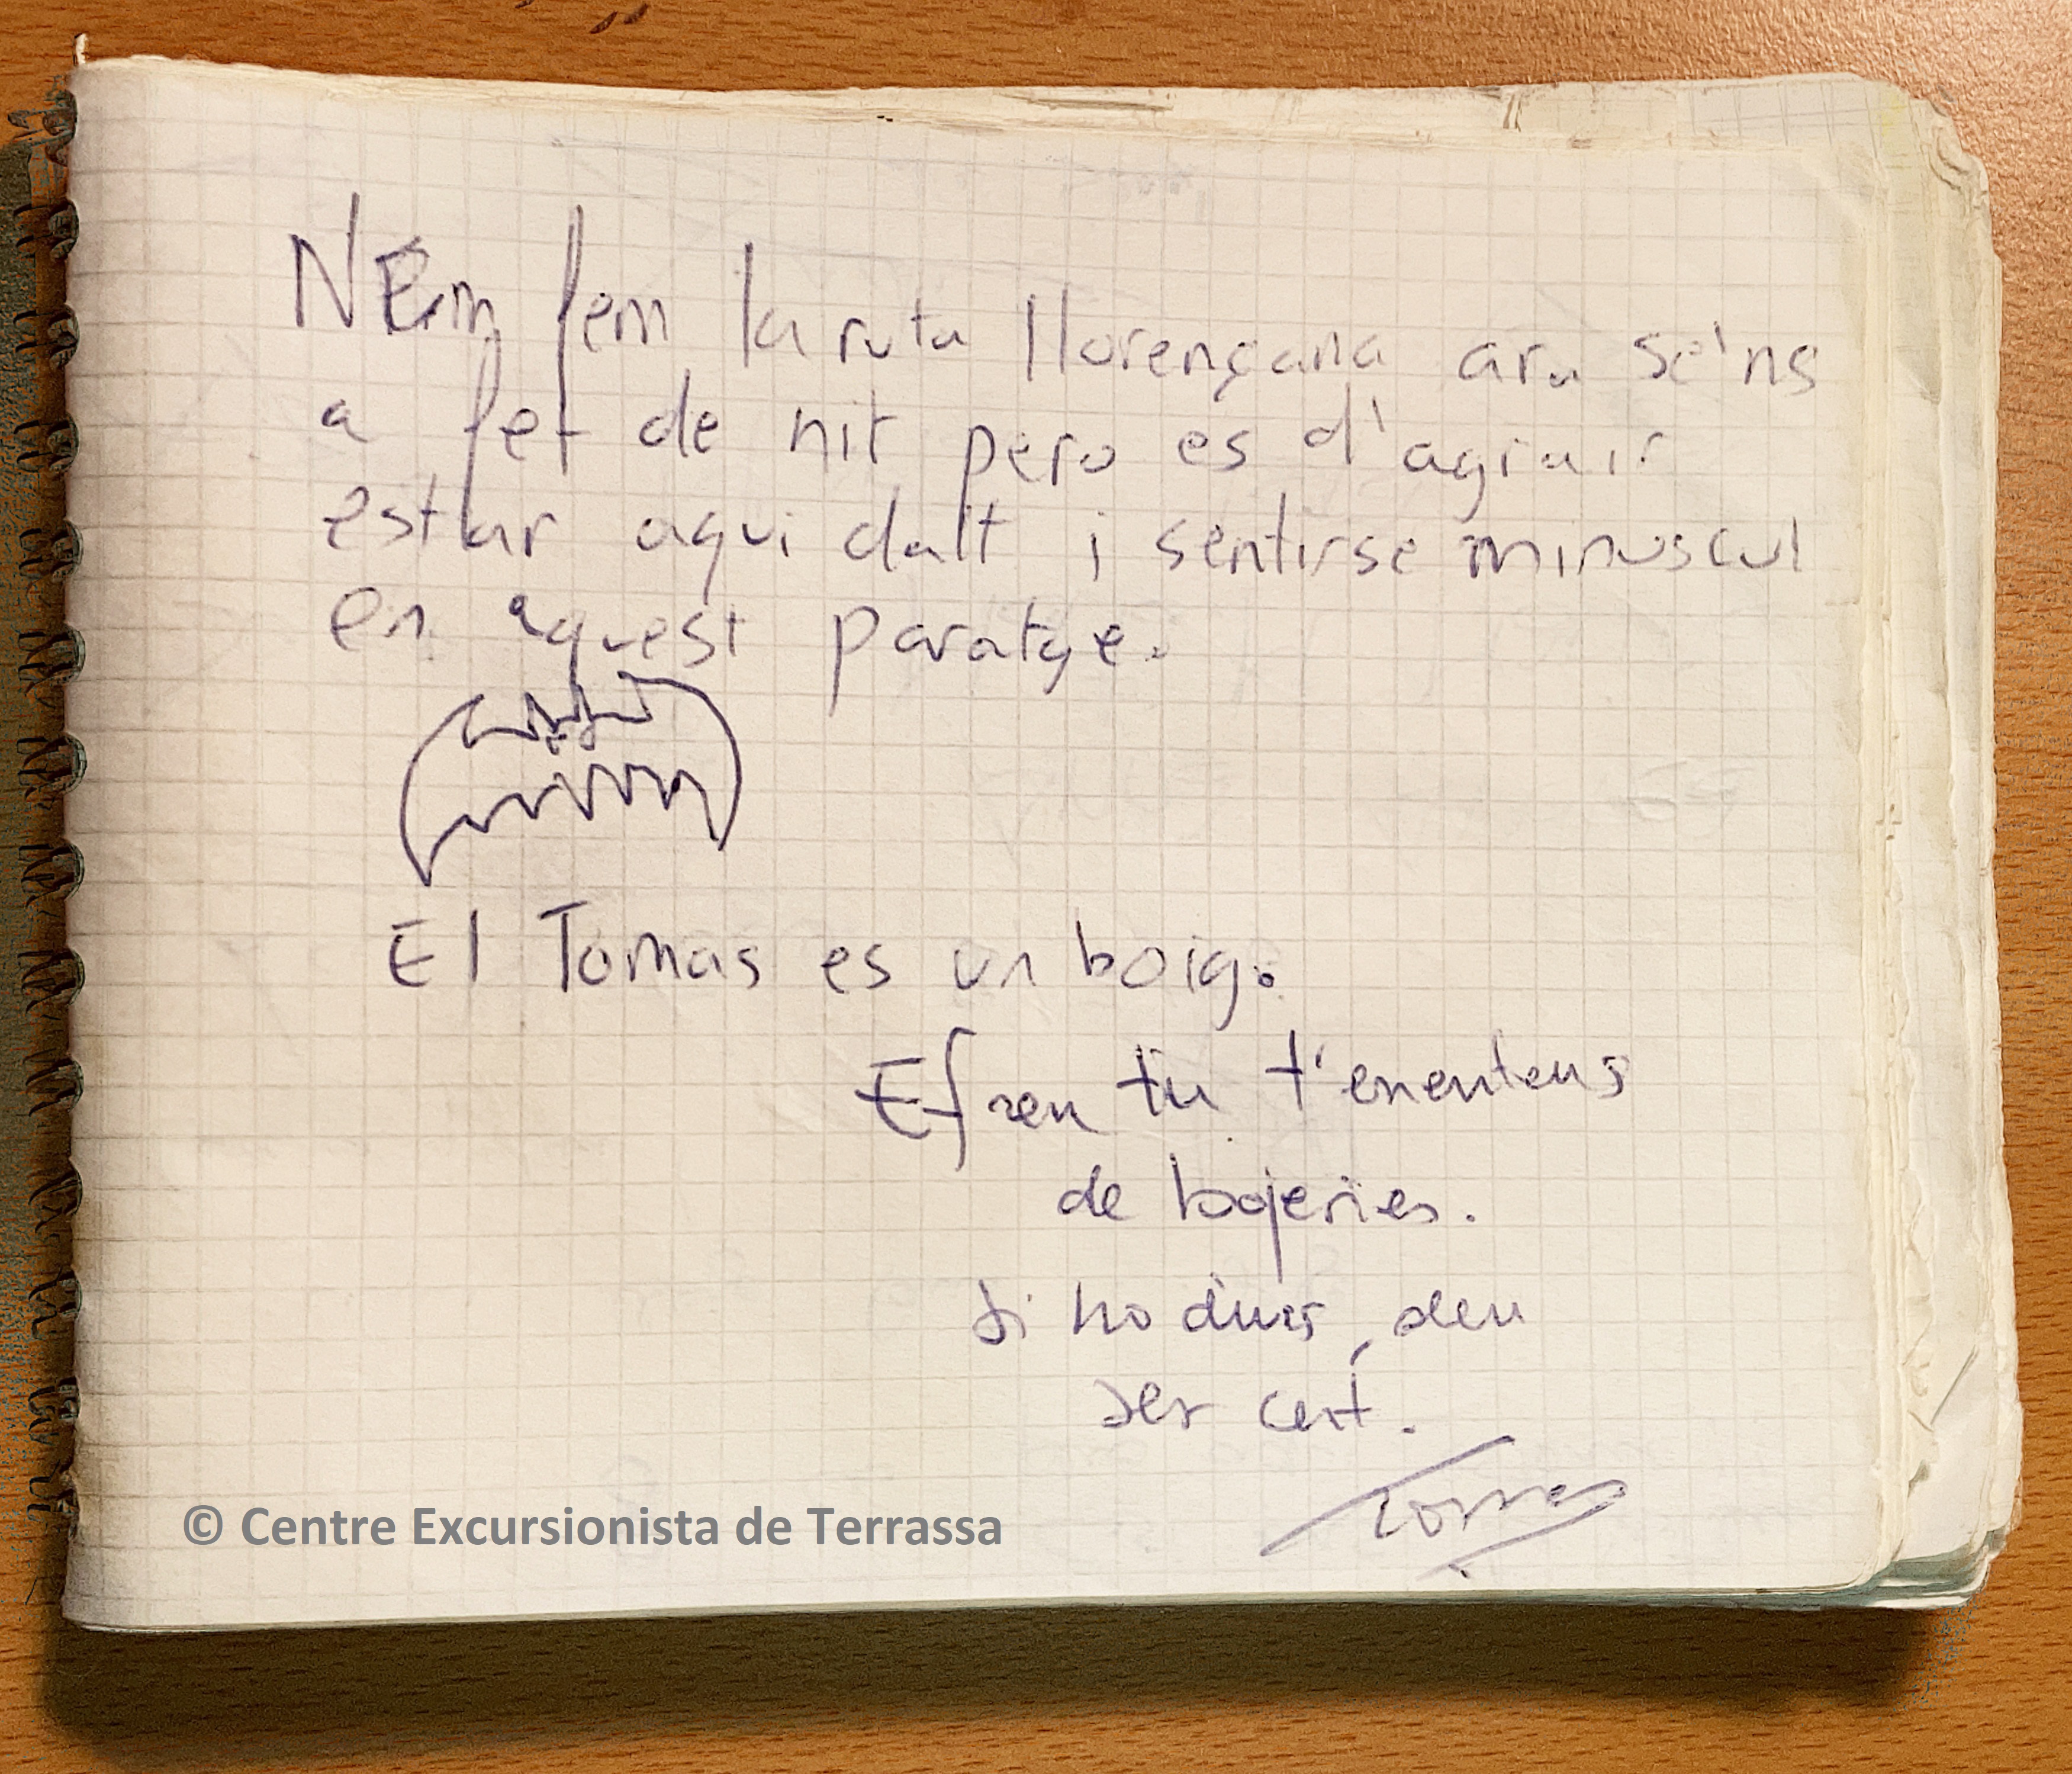 NEm fem la ruta llorençana ara se'ns
a fet de nit pero es d'agrair
estar aqui dalt i sentirse minuscul
en aquest paratge.
El Tomas es un boig.
Efren tu t'enentens
de bojeries.
Si ho dius, deu
ser cert.
© Centre Excursionista de Terrassa